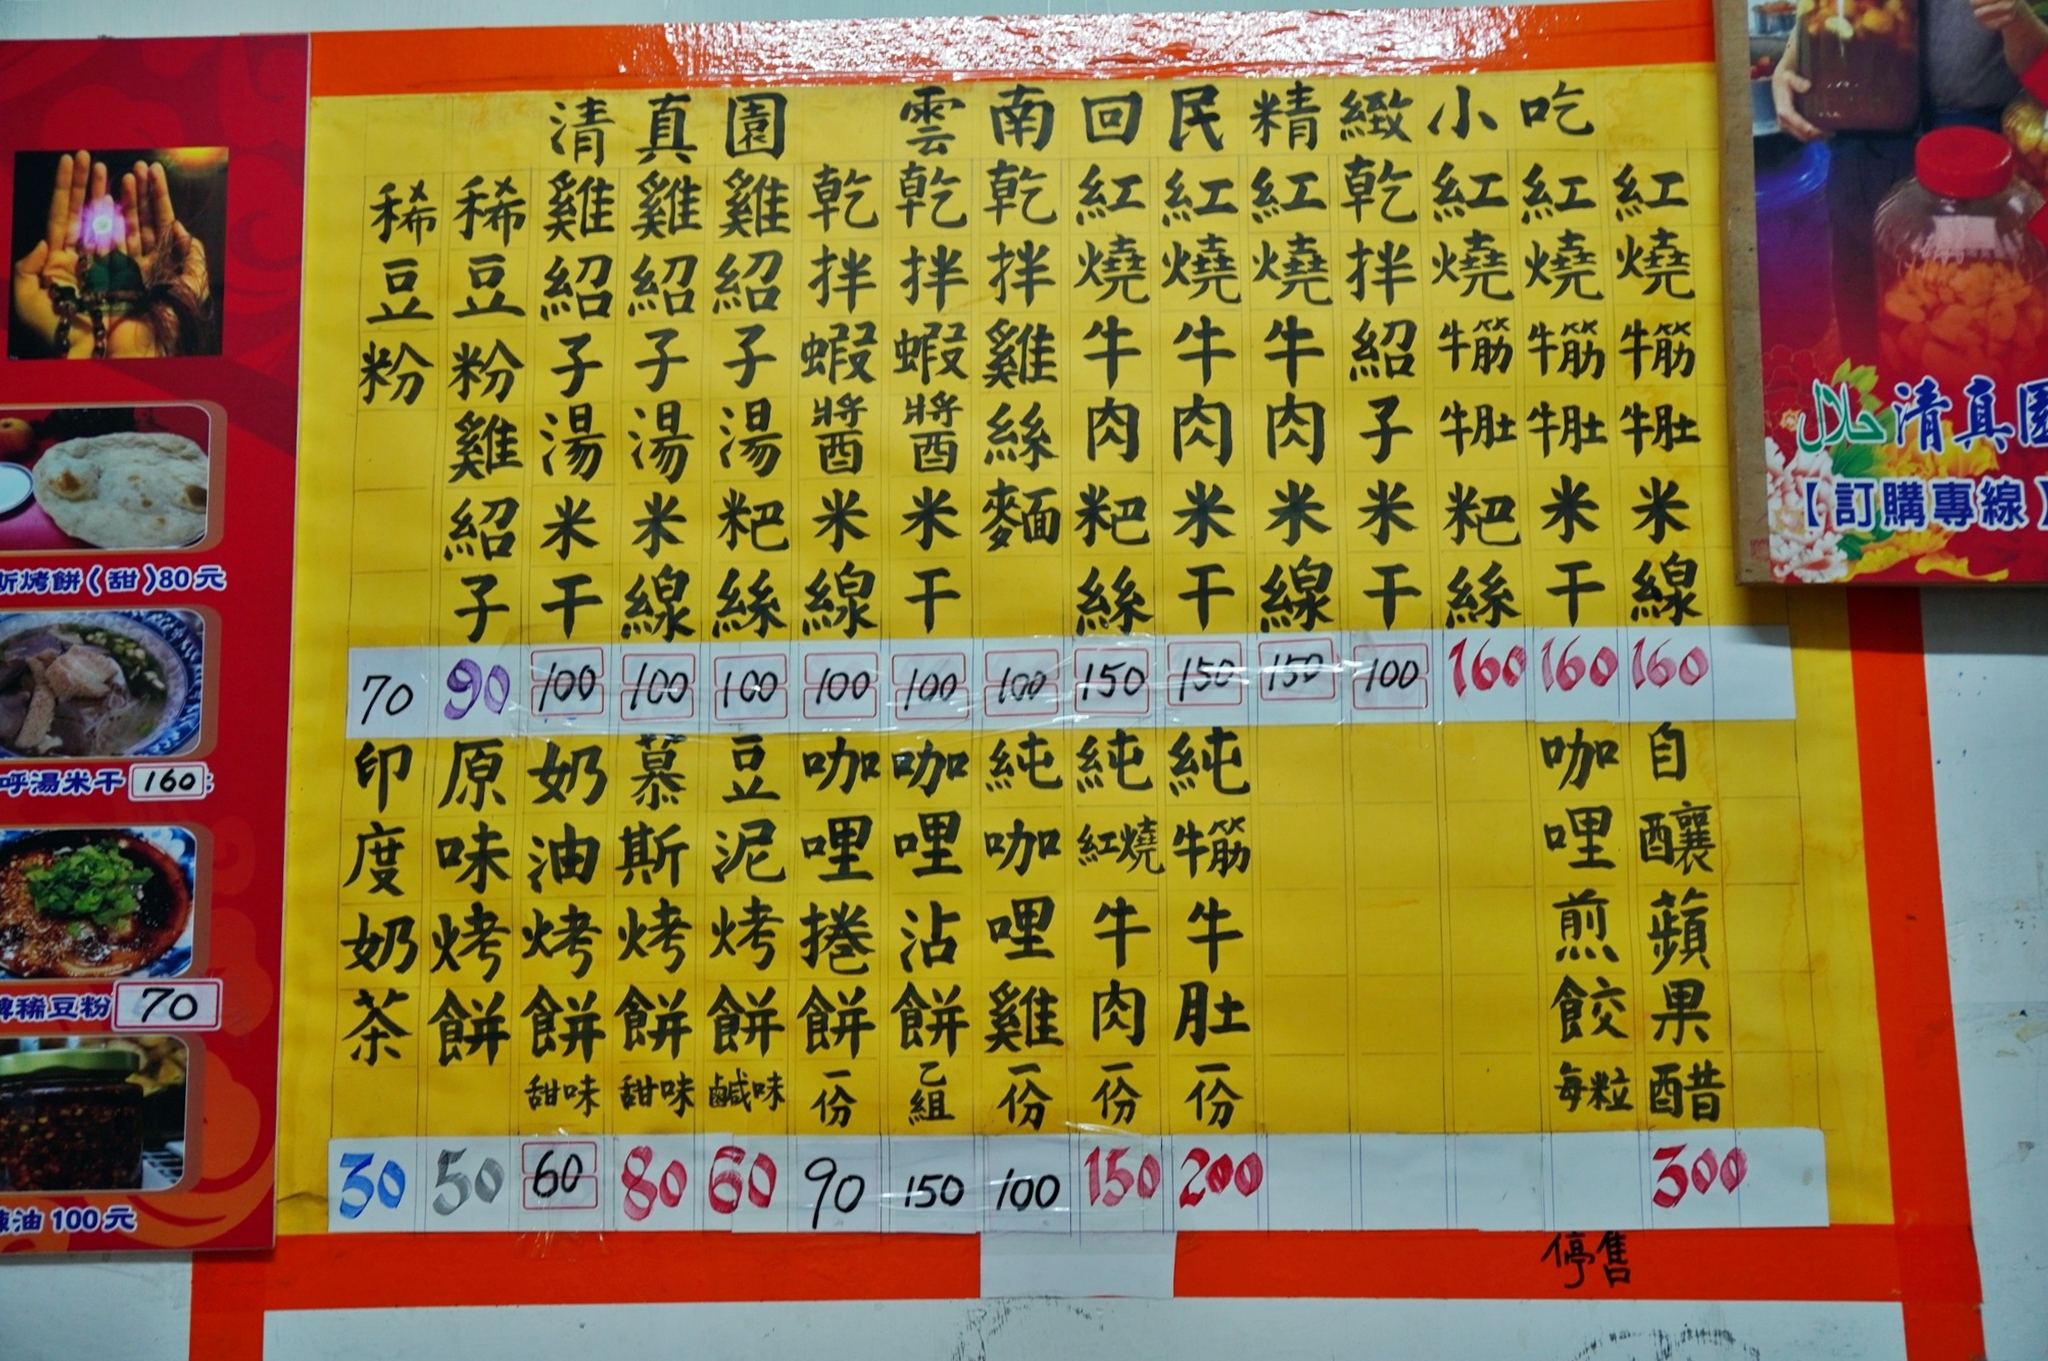 清真園 雲南回民精緻小吃
紅燒牛筋牛肚米線 160
紅燒牛筋牛肚米干 160
紅燒牛筋牛肚粑絲 160
乾拌紹子米干 100
紅燒牛肉米線 150
紅燒牛肉米干 150
紅燒牛肉粑絲 150
乾拌雞絲麵 100
乾拌蝦醬米干 100
乾拌蝦醬米線 100
雞紹子湯粑絲 100
雞紹子湯米線 100
雞紹子湯米干 100
稀豆粉雞紹子 90
稀豆粉 70
自釀蘋果醋 300
咖哩煎餃每粒
停售
純牛筋牛肚一份 200
純紅燒牛肉一份 150
純咖哩雞一份 100
咖哩沾餅乙組 150
咖哩捲餅一份 90
豆泥烤餅鹹味 60
慕斯烤餅甜味 80
奶油烤餅甜味 60
原味烤餅 50
印度奶茶 30
斯烤餅(甜)80元
呼湯米干 160
稀豆粉 70
油 100元
حلال 清真園
【訂購專線】